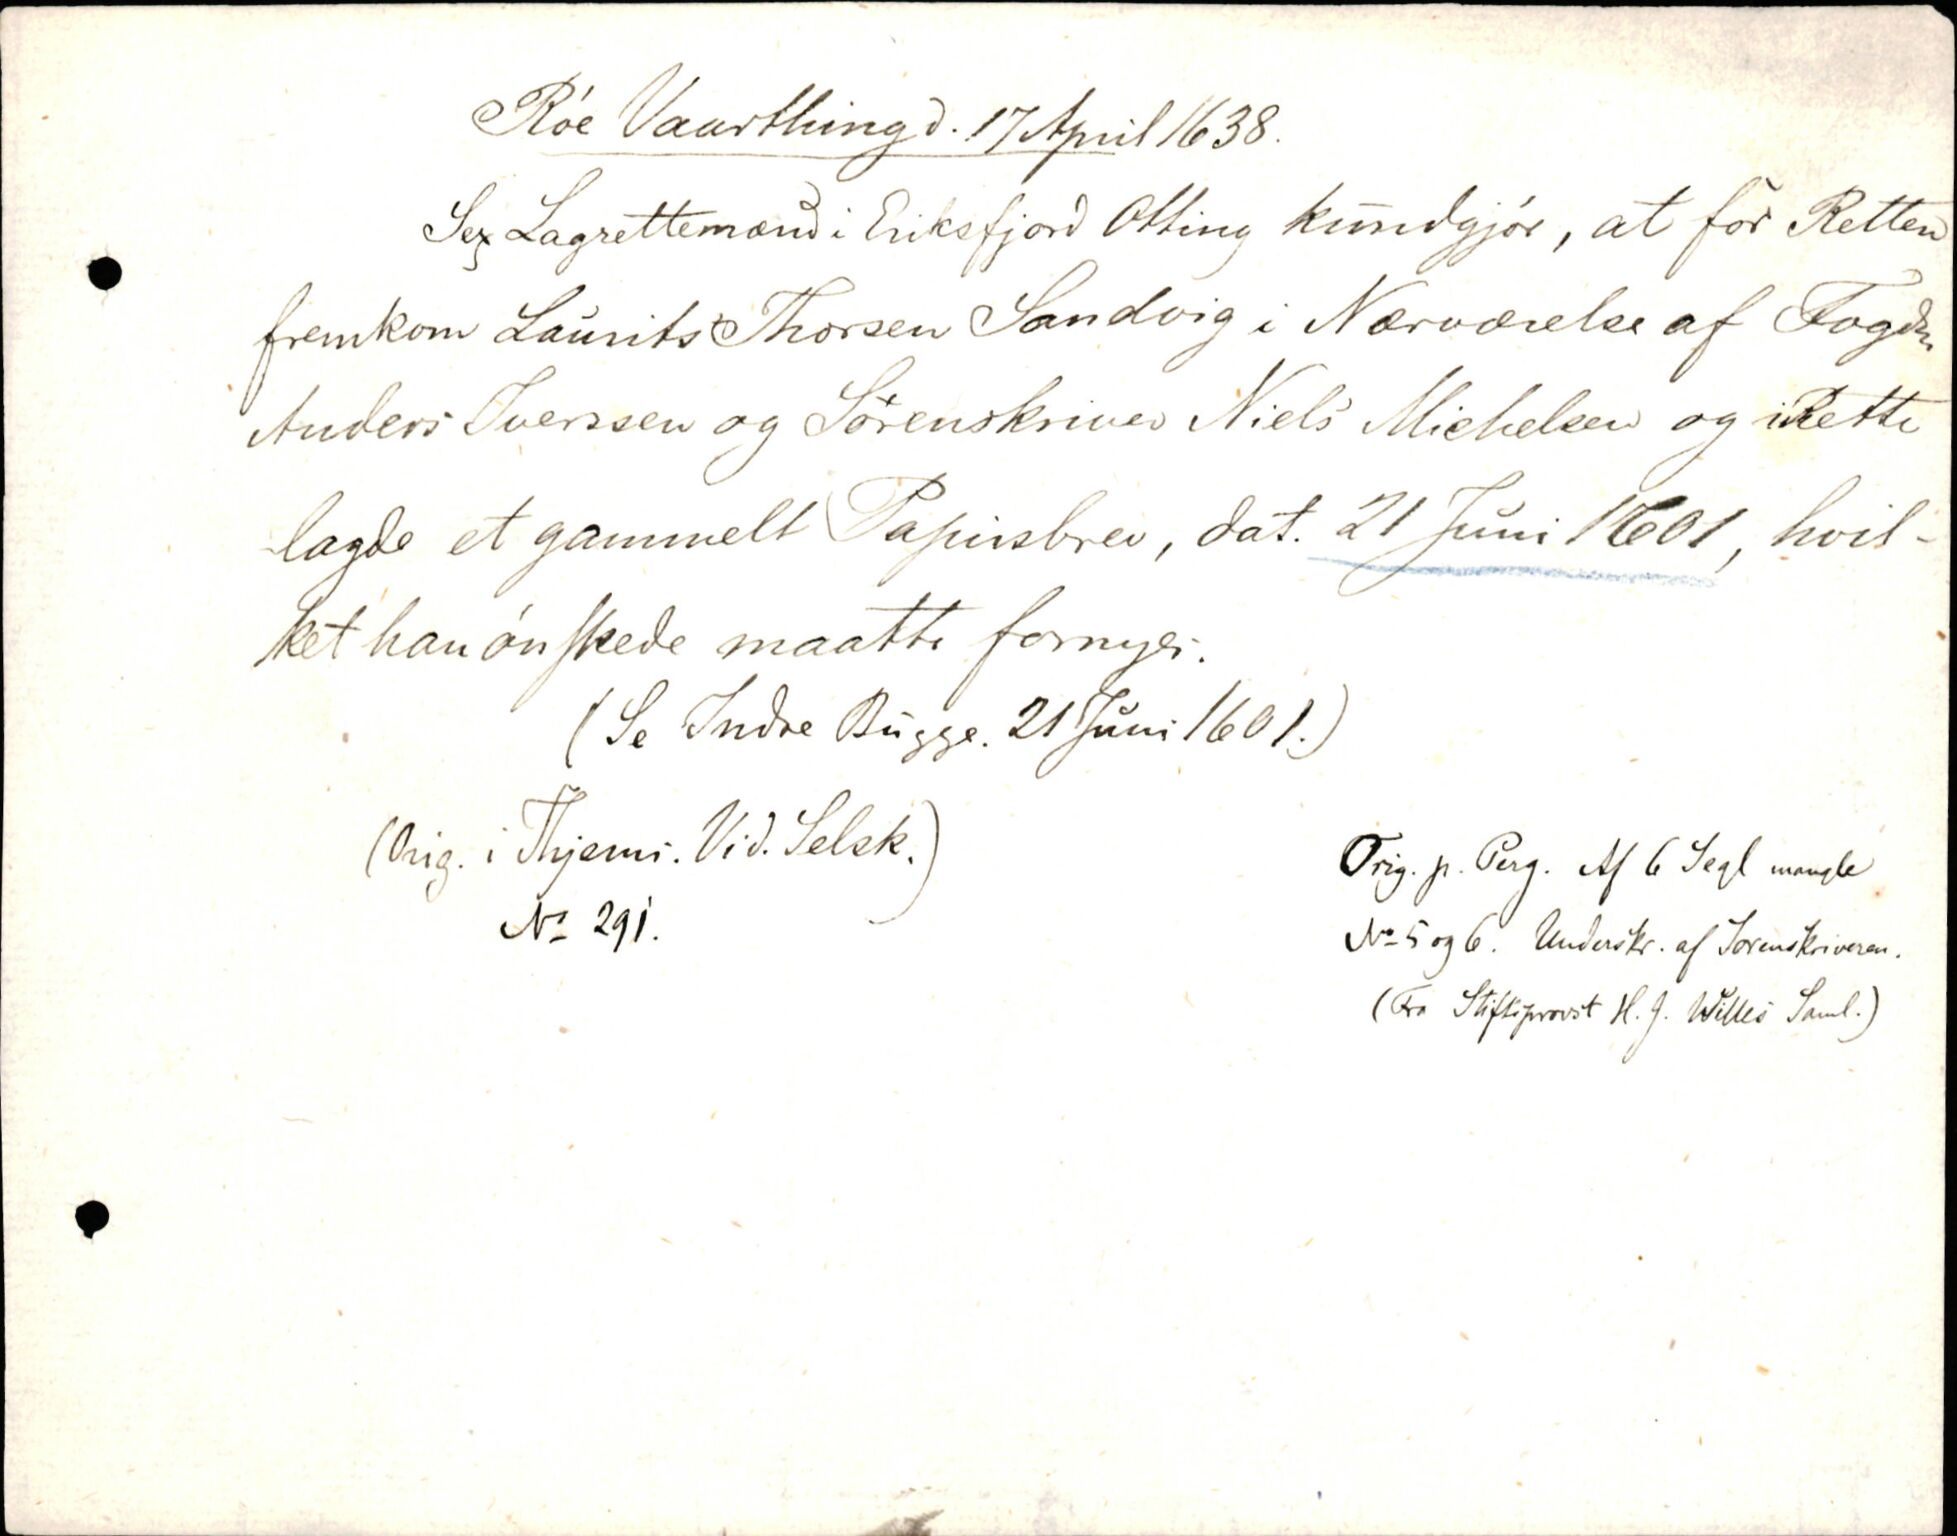 Róe Vaarthing d. 17 April 1638.
Sex Lagrettemænd i Eriksfjord Otting kundgjör, at för Retten
fremkom Laurits Thorsen Sandvig i Nærværelse af Fogden
Anders Iverssen og Sörenskriver Niels Michelsen og i Rette
lagde et gammelt Papirsbrev, dat. 21 Juni 1601, hvil-
ket han önskede maatte fornyes.
(Se Indre Bugge. 21 Juni 1601.)
(Orig. i Thjems. Vid. Selsk.)
No 291.
Orig. p. Perg. Af 6 Segl mangle
No 5 og 6. Underskr. af Sorenskriveren.
(Fra Stiftsprovst H. J. Willes Saml.)